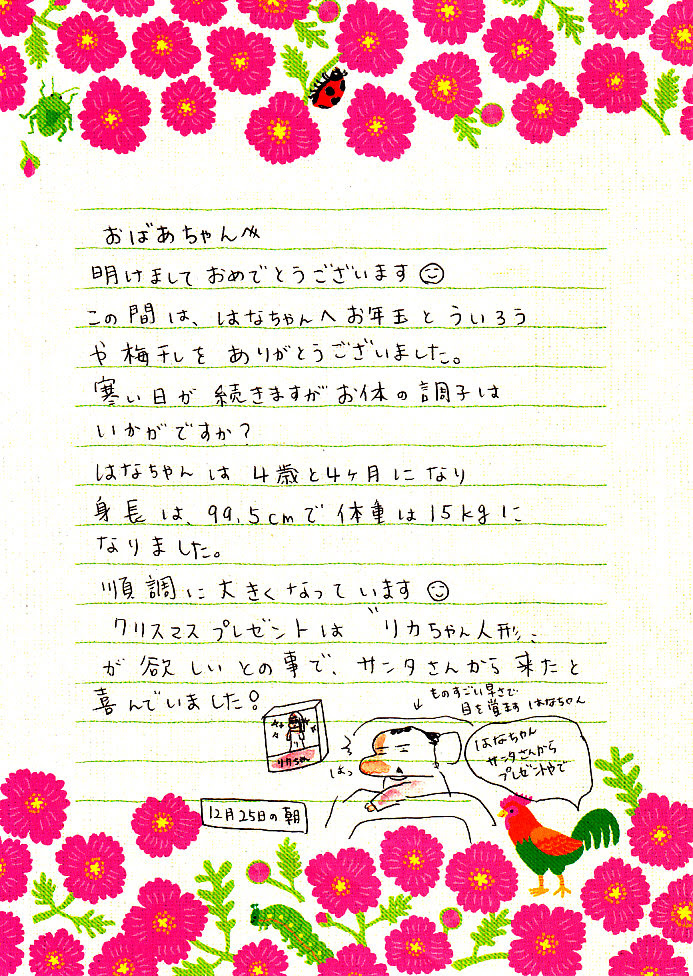 おばあちゃんへ
明けましておめでとうございます
この間は、はなちゃんへお年玉とういろう
や梅干しをありがとうございました。
寒い日が続きますがお体の調子は
いかがですか?
はなちゃんは4歳と4ヶ月になり
身長は、99.5cmで体重は15kgに
なりました。
順調に大きくなっています
クリスマスプレゼントは〝リカちゃん人形〟
が欲しいとの事で、サンタさんから来たと
喜んでいました!
ものすごい早さで
目を覚ます はなちゃん
はなちゃん
サンタさんから
プレゼントやで
はっ
リカちゃん
12月25日の朝